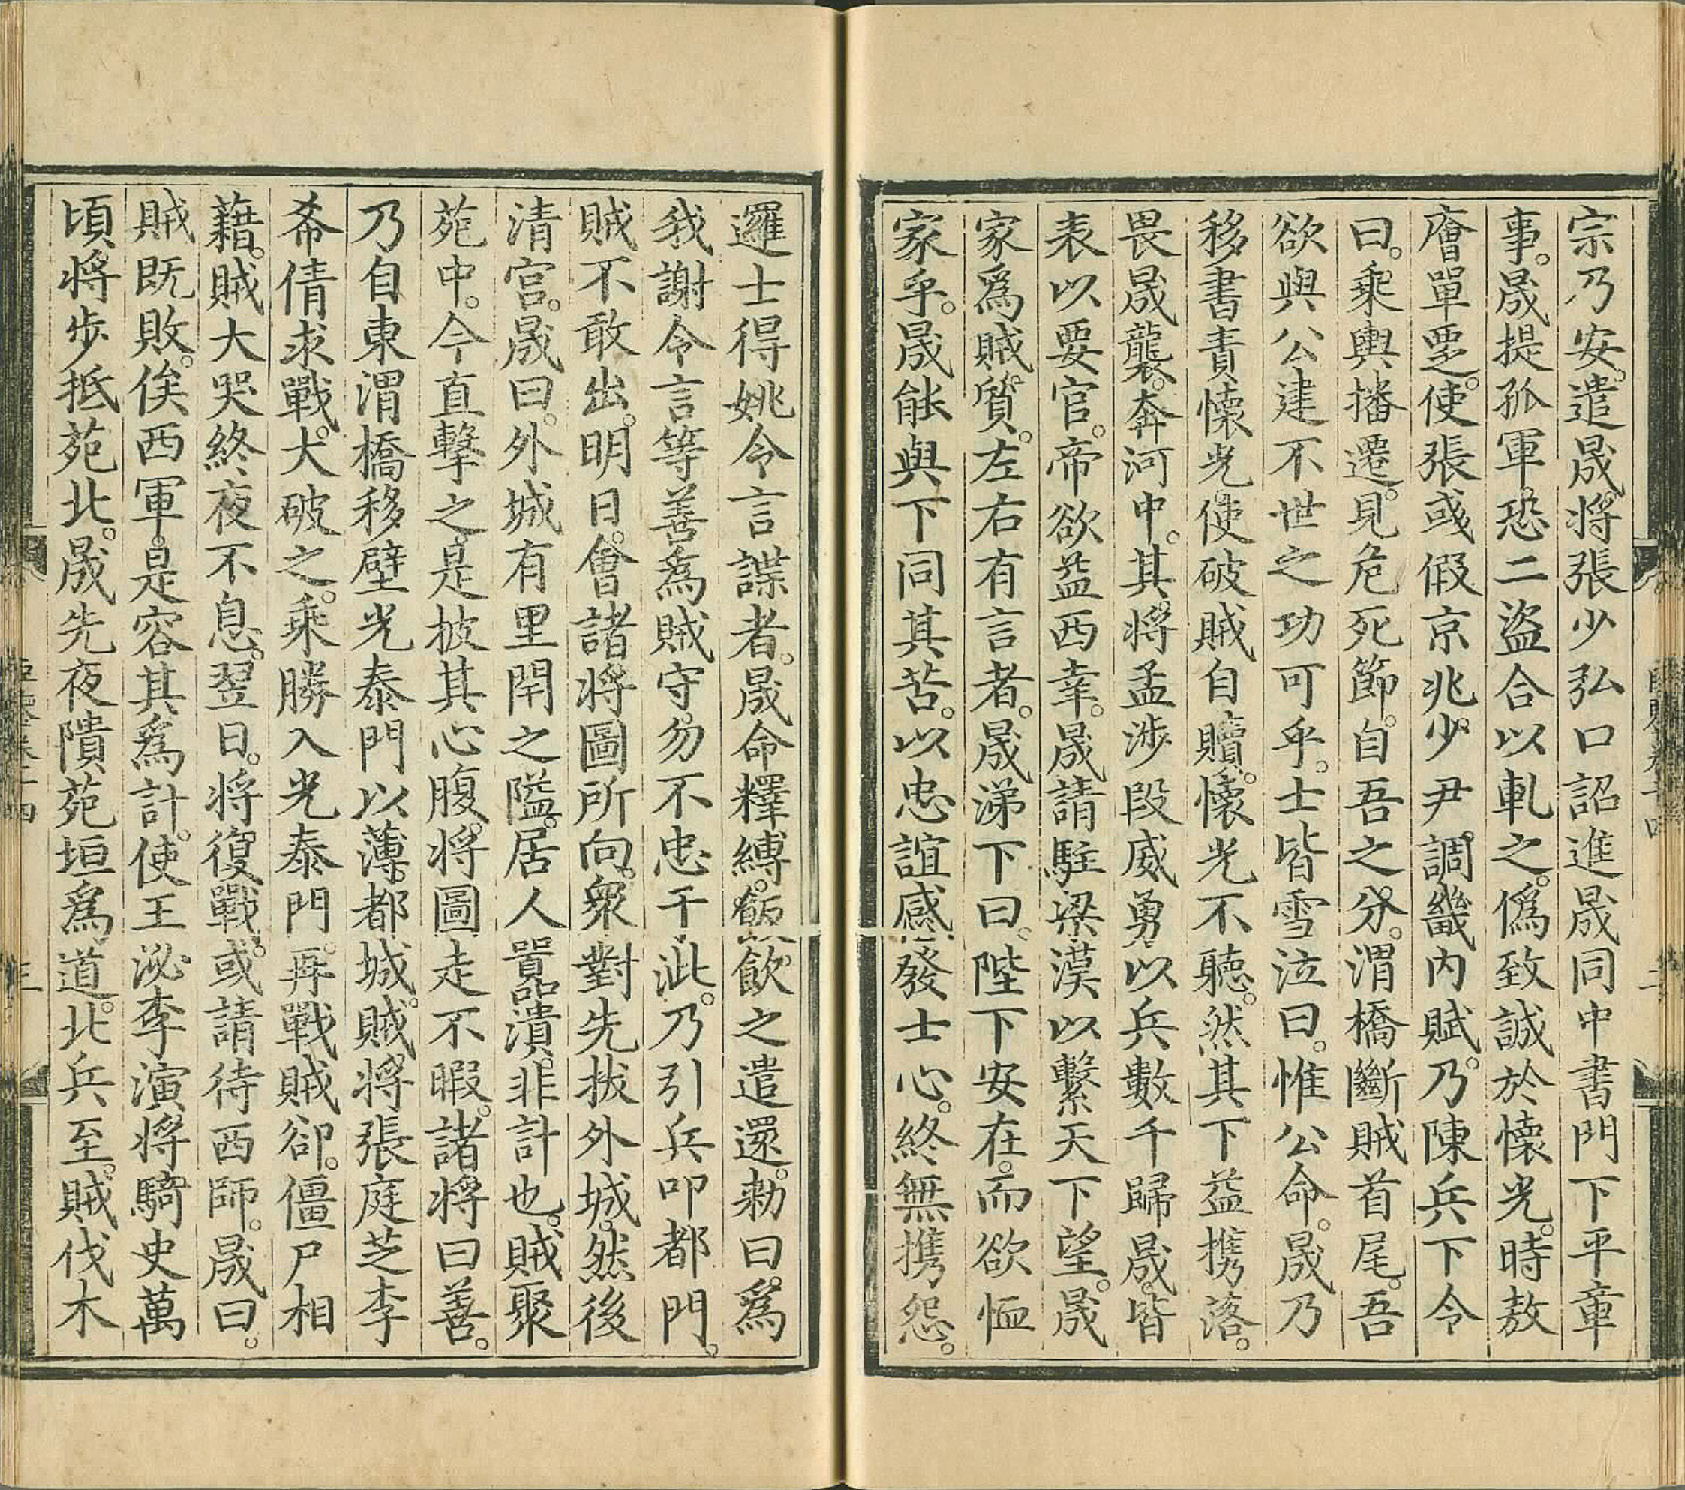 宗乃安。遣晟將張少弘口詔進晟同中書門下平章
事。晟提孤軍。恐二盜合以軋之。僞致誠於懷光。時敖
廥單乏。使張彧假京兆少尹。調畿內賦。乃陳兵下令
曰。乘輿播遷。見危死節。自吾之分。渭橋斷賊首尾。吾
欲與公建不世之功可乎。士皆雪泣曰。惟公命。晟乃
移書責懷光。使破賊自贖。懷光不聽。然其下益携落。
畏晟襲。奔河中。其將孟涉段威勇以兵數千歸晟。皆
表以要官。帝欲益西幸。晟請駐梁漢以繫天下望。晟
家爲賊質。左右有言者。晟涕下曰。陛下安在。而欲恤
家乎。晟能與下同其苦。以忠誼感發士心。終無携怨。
邏士得姚令言諜者。晟命釋縛。飯飲之遣還。勑曰。爲
我謝令言等善爲賊守。勿不忠于泚。乃引兵叩都門。
賊不敢出。明日。會諸將圖所向。衆對先拔外城。然後
清宮。晟曰。外城有里閈之隘。居人囂潰。非計也。賊聚
苑中。今直擊之。是披其心腹。將圖走不暇。諸將曰善。
乃自東渭橋移壁光泰門以薄都城。賊將張庭芝李
希倩求戰。大破之。乘勝入光泰門。再戰賊卻。僵尸相
藉。賊大哭終夜不息。翌日。將復戰。或請待西師。晟曰。
賊既敗。俟西軍。是容其爲計。使王泌李演將騎史萬
頃將步抵苑北。晟先夜隤苑垣爲道。北兵至。賊伐木